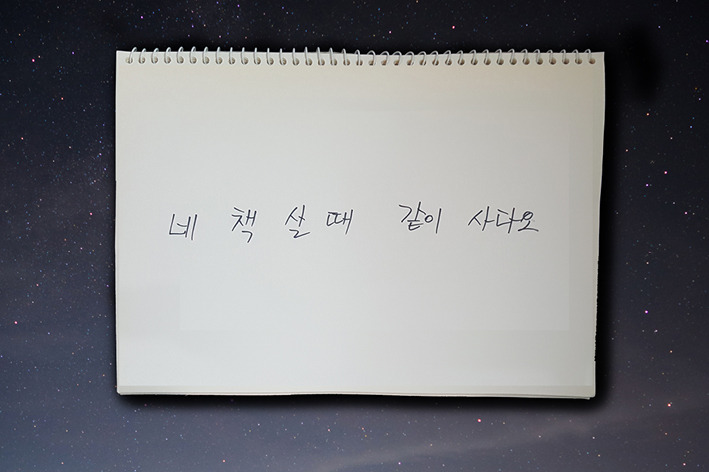 네 책 살 때 같이 사다오